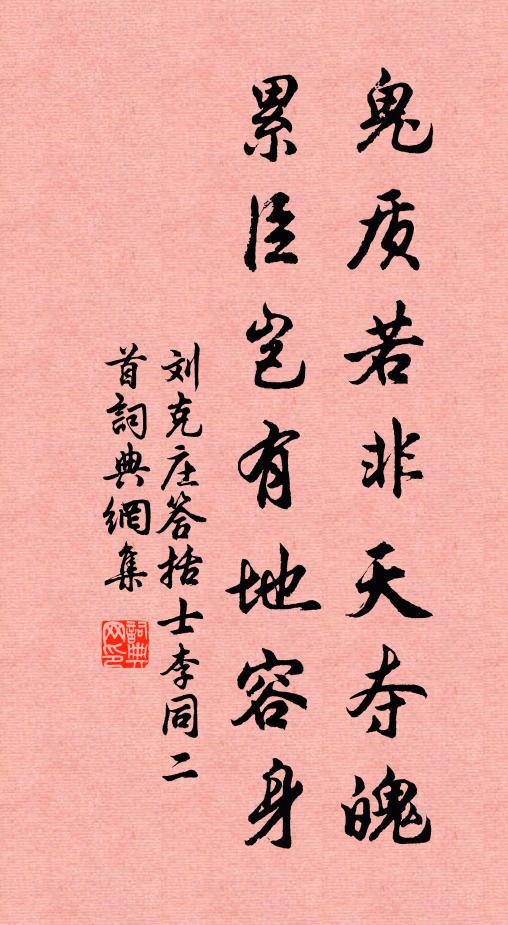 鬼质若非天夺魄
累臣岂有地容身
刘克庄答括士李同二
首詞典網集
詞典网印